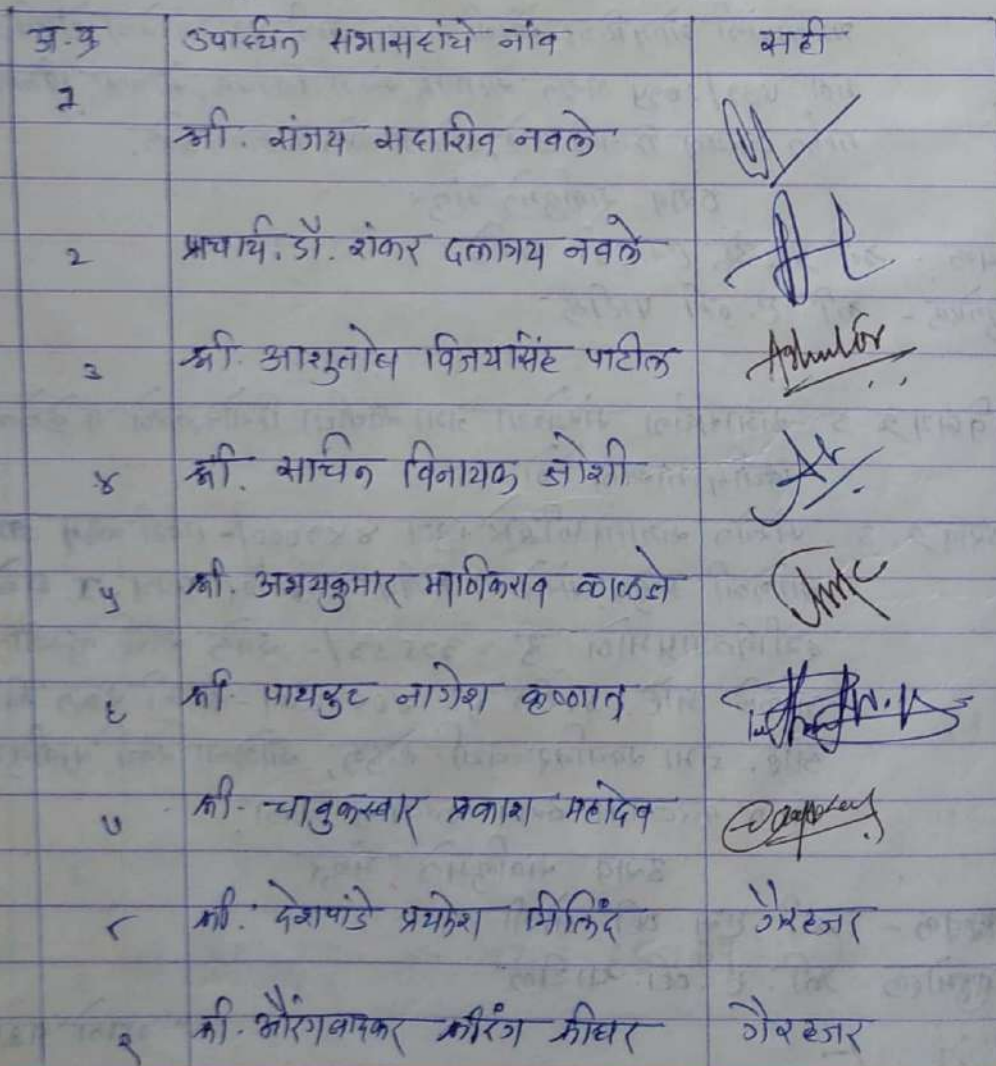 अ.क्र उपस्थित सभासदांचे नांव सही
१ श्री. संजय सदाशिव नवले
२ प्राचार्य. डॉ. शंकर दत्तात्रय नवले
३ श्री. आशुतोष विजयसिंह पाटील
४ श्री. सचिन विनायक जोशी
५ श्री. अभयकुमार माणिकराव काळले
६ श्री. पाथरुट नागेश कृष्णात
७ श्री. चाबुकस्वार प्रकाश महादेव
८ श्री. देशपांडे प्रथमेश मिलिंद गैरहजर
९ श्री. औरंगबादकर श्रीरंग श्रीधर गैरहजर